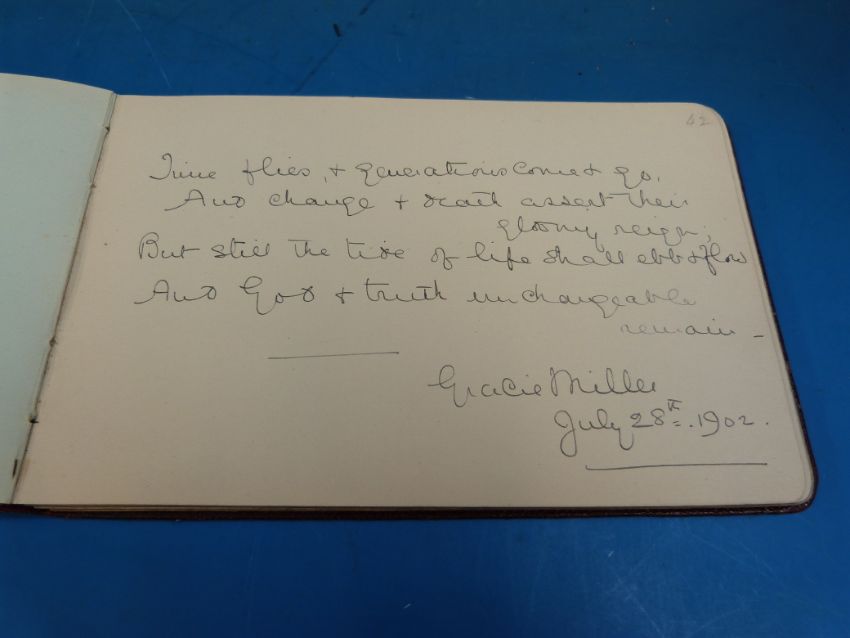 42
Time flies, & generations come & go,
And change & death assert their
gloomy reign;
But still the tide of life shall ebb & flow
And God & truth unchangeable
remain -
Gracie Miller
July 28th. 1902.